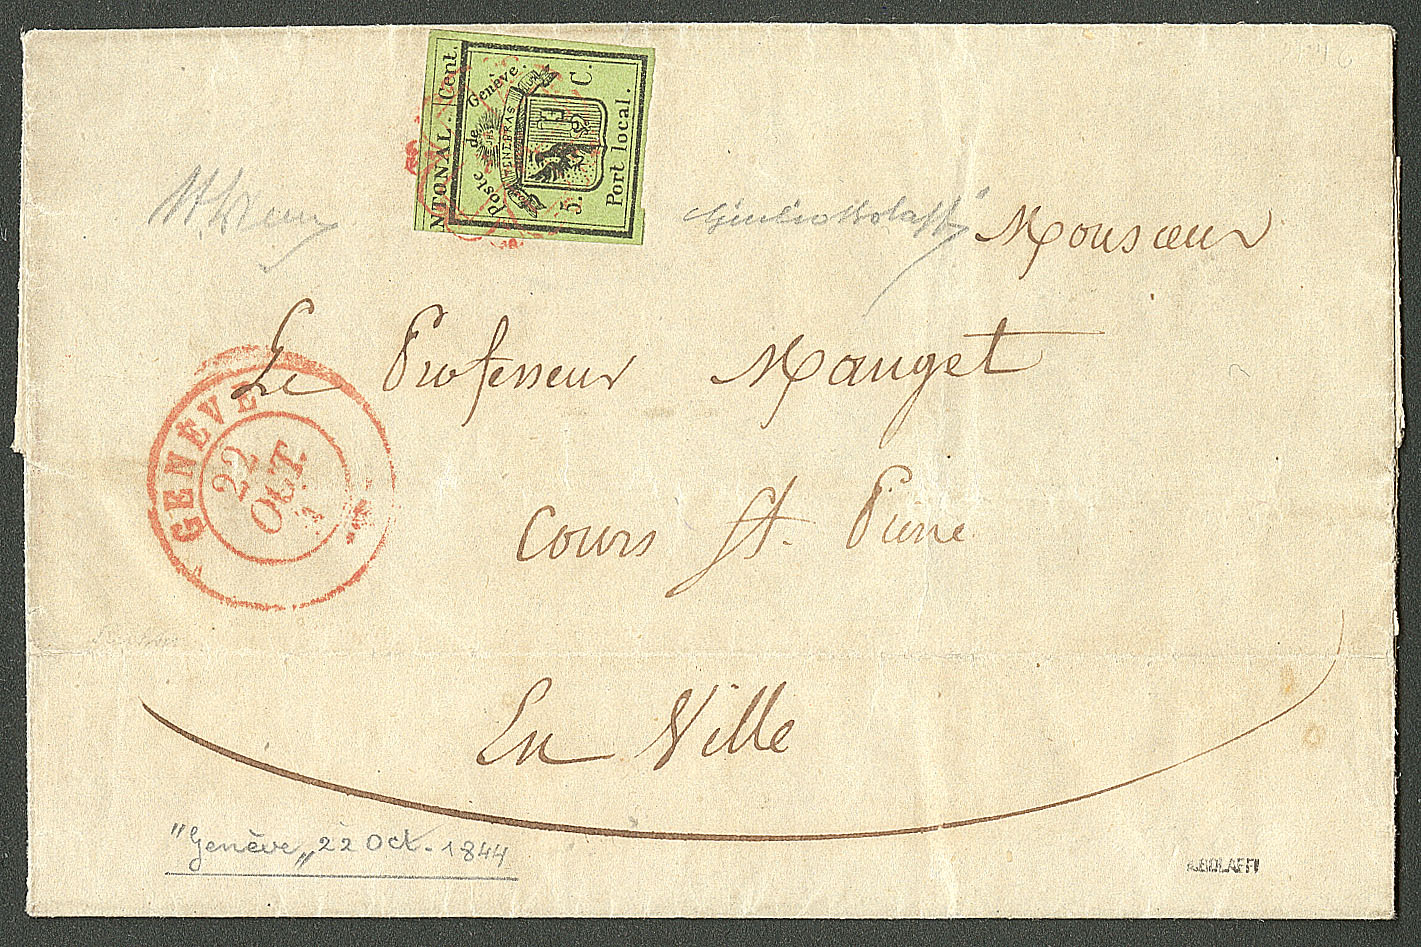 NTONAL. Cent.
Poste de Genève.
TENEBRAS
5. C.
Port local.
Giulio Bolaffi
Monsieur
Le Professeur Mauget
Cours St. Pierre
En Ville
GENÈVE
22
OCT.
"Genève„ 22 Oct. 1844
A.BOLAFFI